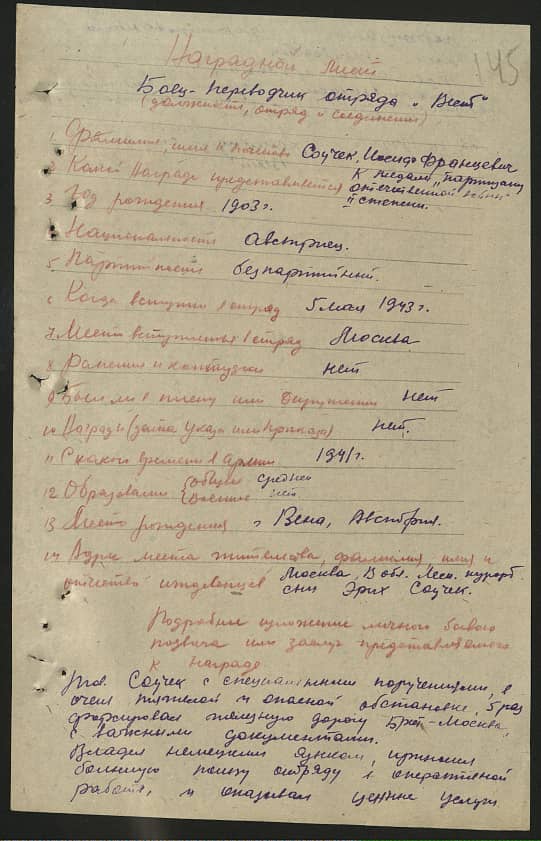 145
Наградной лист
Боец-переводчик отряда "Вест"
(должность, отряд и соединение)
1. Фамилия, имя и отчество Соучек, Иосиф Францевич
2. Какой награде представляется К медали "партизану
отечественной войны"
II степени.
3. Год рождения 1903 г.
Национальность Австриец.
5. Партийность безпартийный.
6 Когда вступил в отряд 5 мая 1943 г.
7. Место вступления в отряд Москва
8. Ранения и контузии нет
9. Был ли в плену или окружении нет
10 Награды (дата указа или приказа) нет.
11 С какого времени в Армии 1941 г.
12 Образование общее среднее
военное нет
13 Место рождения г Вена, Австрия.
14 Адрес места жительства, фамилия имя и
отчество Москва,
сын Эрих Соучек.
Подробное изложение личного боевого
подвига или заслуг представляемого
к награде
Тов. Соучек с специальными поручениями, в
очень тяжелой и опасной обстановке, 5 раз
железную дорогу Москва,
с важными документами.
Владея немецким языком, приносил
большую пользу отряду в оперативной
работе, и оказывал ценные услуги